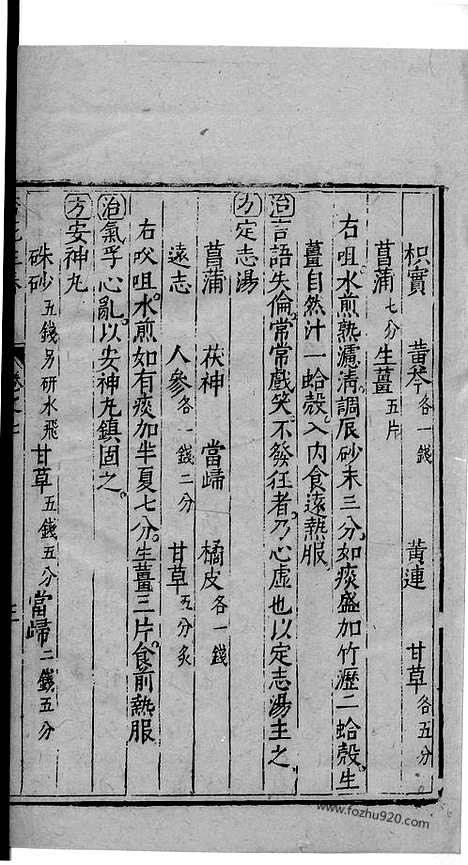 枳實　黃芩各一錢　黃連　甘草各五分
菖蒲七分　生薑五片
右咀水煎熟濾清調辰砂末三分如痰盛加竹瀝二蛤殼生
薑自然汁一蛤殼入內食遠熱服
治言語失倫常常戲笑不發狂者乃心虛也以定志湯主之
方定志湯
菖蒲　茯神　當歸　橘皮各一錢
遠志　人參各一錢二分　甘草五分炙
右㕮咀水煎如有痰加半夏七分生薑三片食前熱服
治氣浮心亂以安神丸鎮固之
方安神丸
硃砂五錢另研水飛　甘草五錢五分　當歸二錢五分
www.fozhu920.com